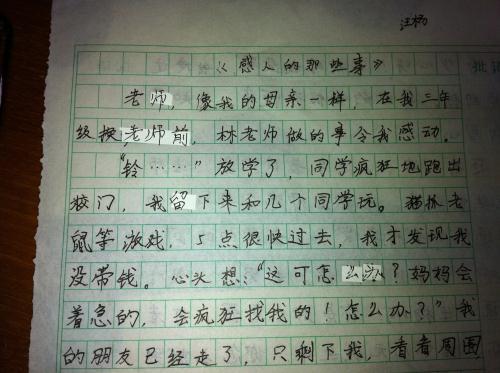 汪杨
《感人的那些事》
老师，像我的母亲一样，在我三年
级按老师前，林老师做的事令我感动。
"铃……"放学了，同学疯狂地跑出
校门，我留下来和几个同学玩。猫抓老
鼠等游戏，5点很快过去，我才发现我
没带钱。心头想："这可怎么办？妈妈会
着急的，会疯狂找我的！怎么办？"我
的朋友已经走了，只剩下我，看着周围